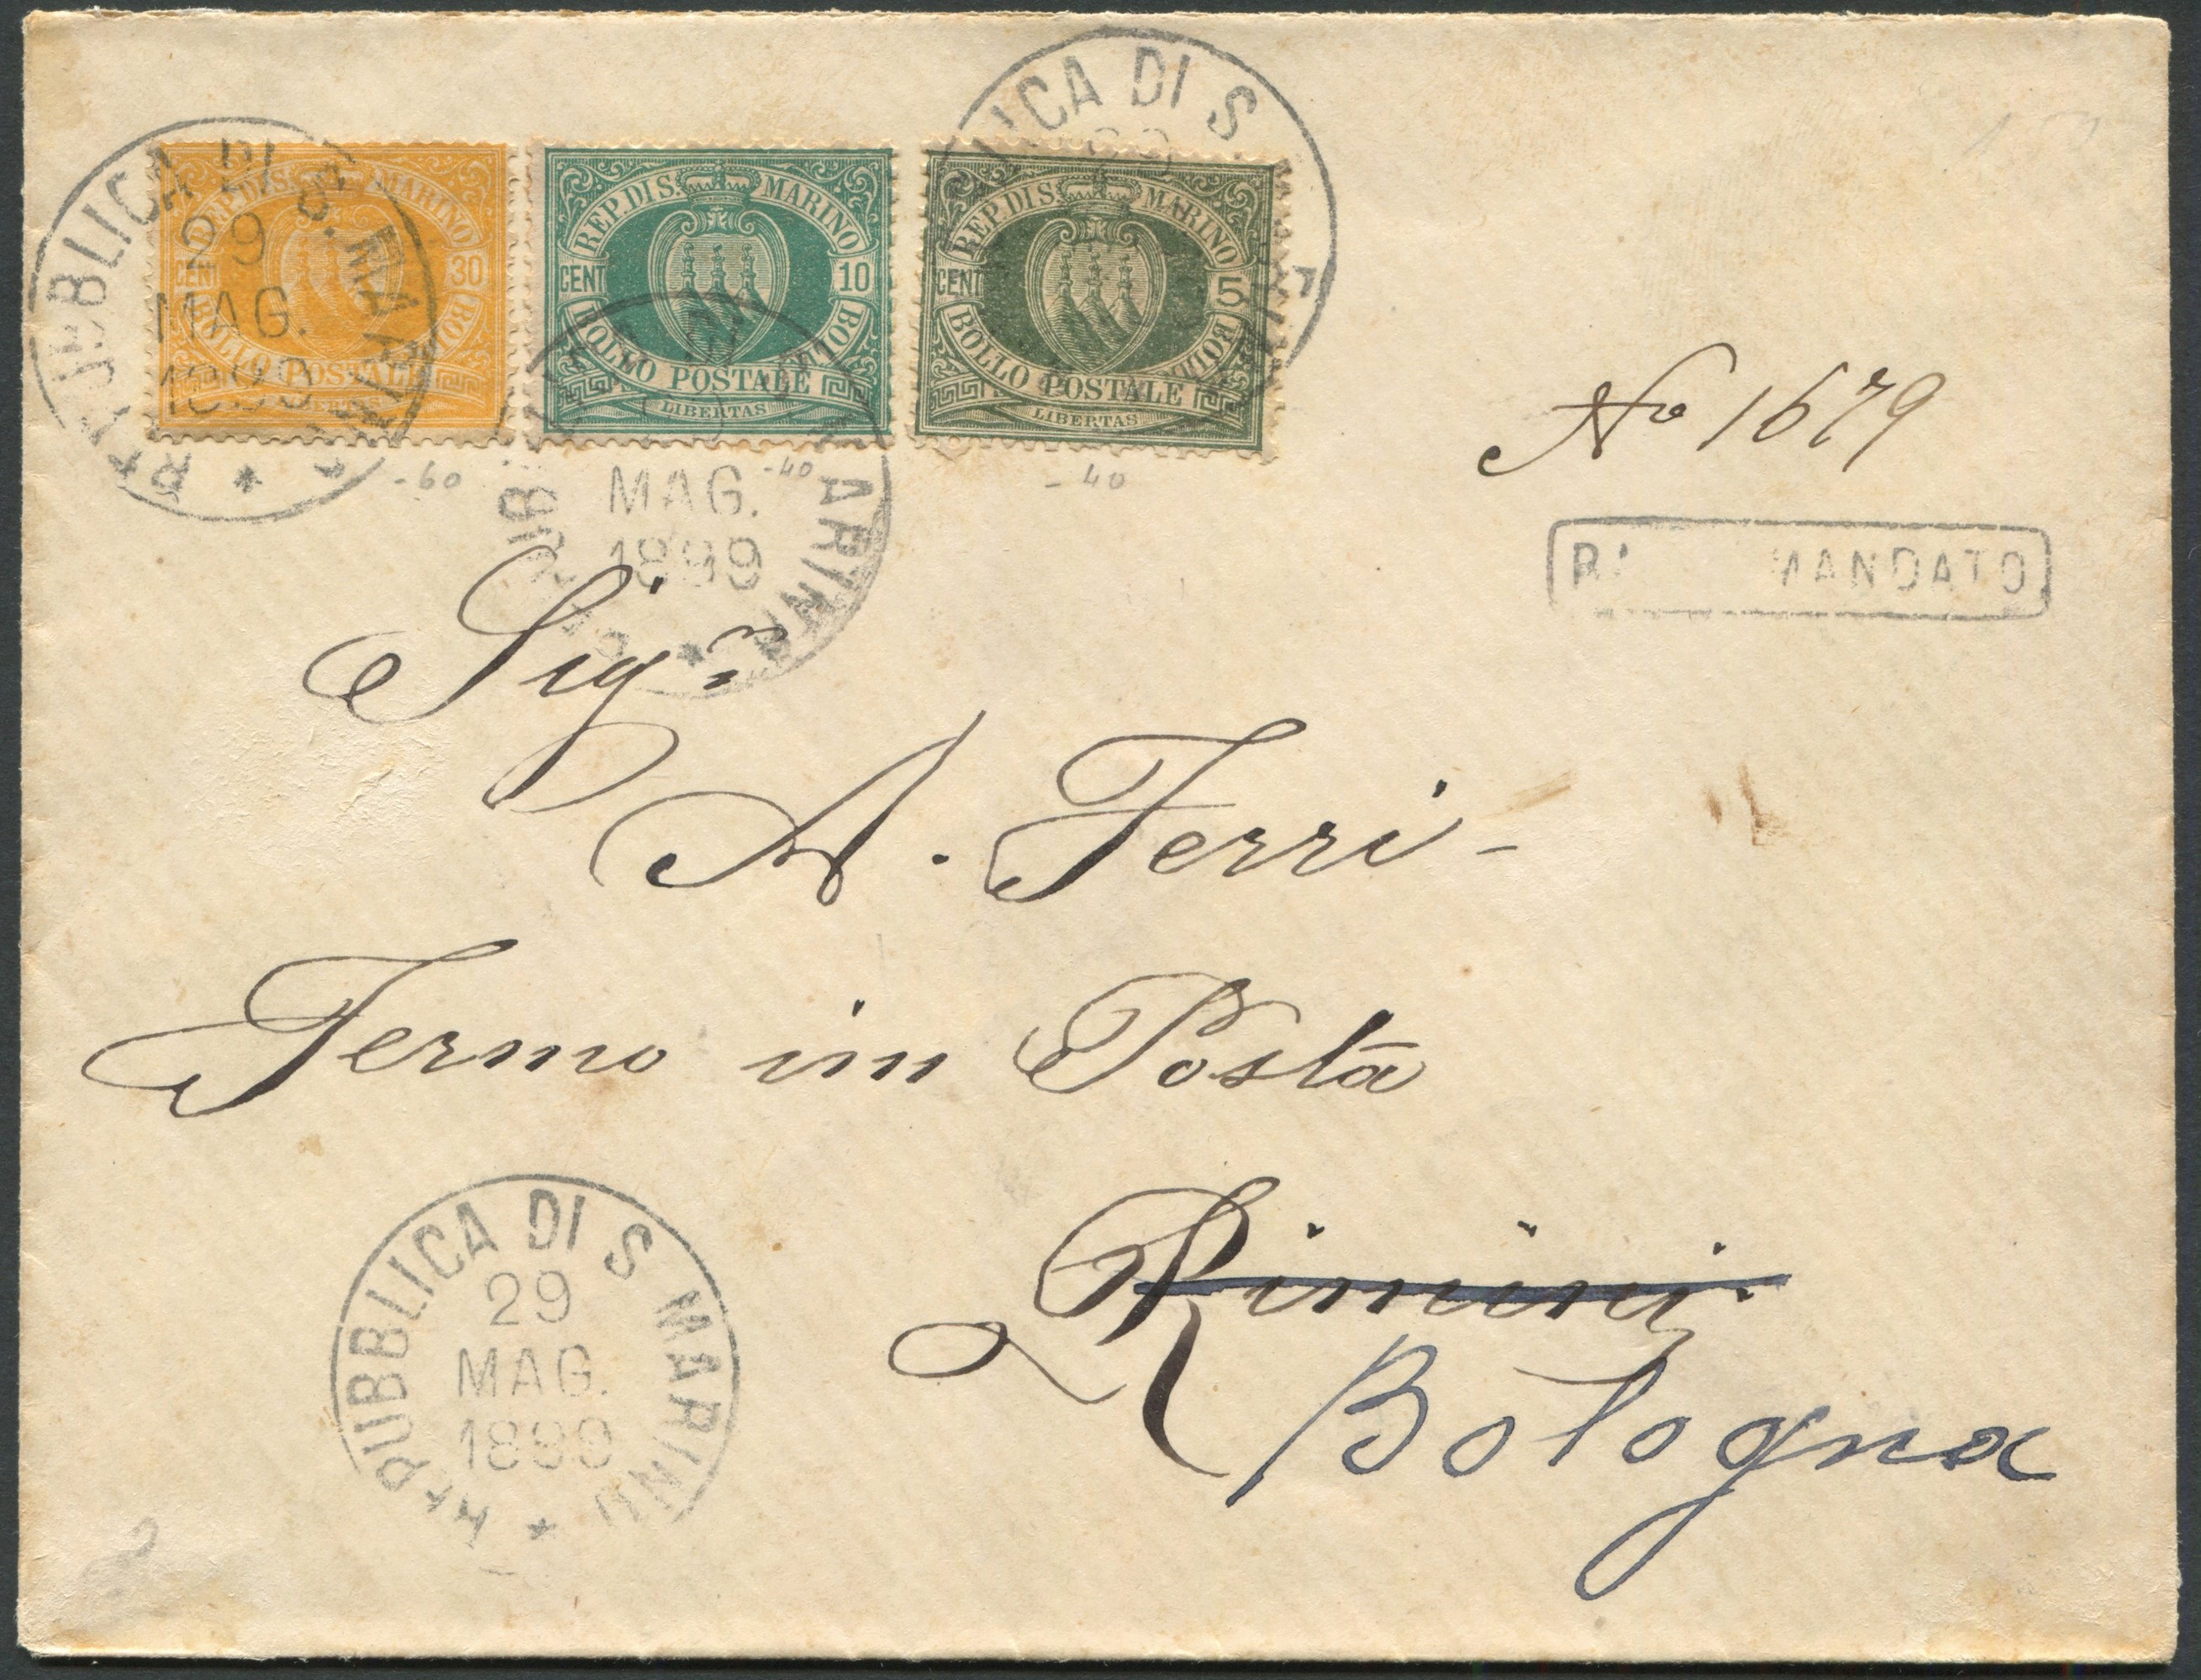 REPUBBLICA DI S. MARINO
29
MAG.
1899
REP. DI S. MARINO
CENT 30
BOLLO POSTALE
LIBERTAS
REP. DI S. MARINO
CENT 10
BOLLO POSTALE
LIBERTAS
UBBLICA DI S. MARINO
29
REP. DI S. MARINO
CENT 5
BOLLO POSTALE
LIBERTAS
-60
-40
-40
MARINO
MAG.
1899
No 1679
RA MANDATO
Sigr
A. Ferri -
Fermo in Posta
Rimini
Bologna
REPUBBLICA DI S MARINO
29
MAG.
1899